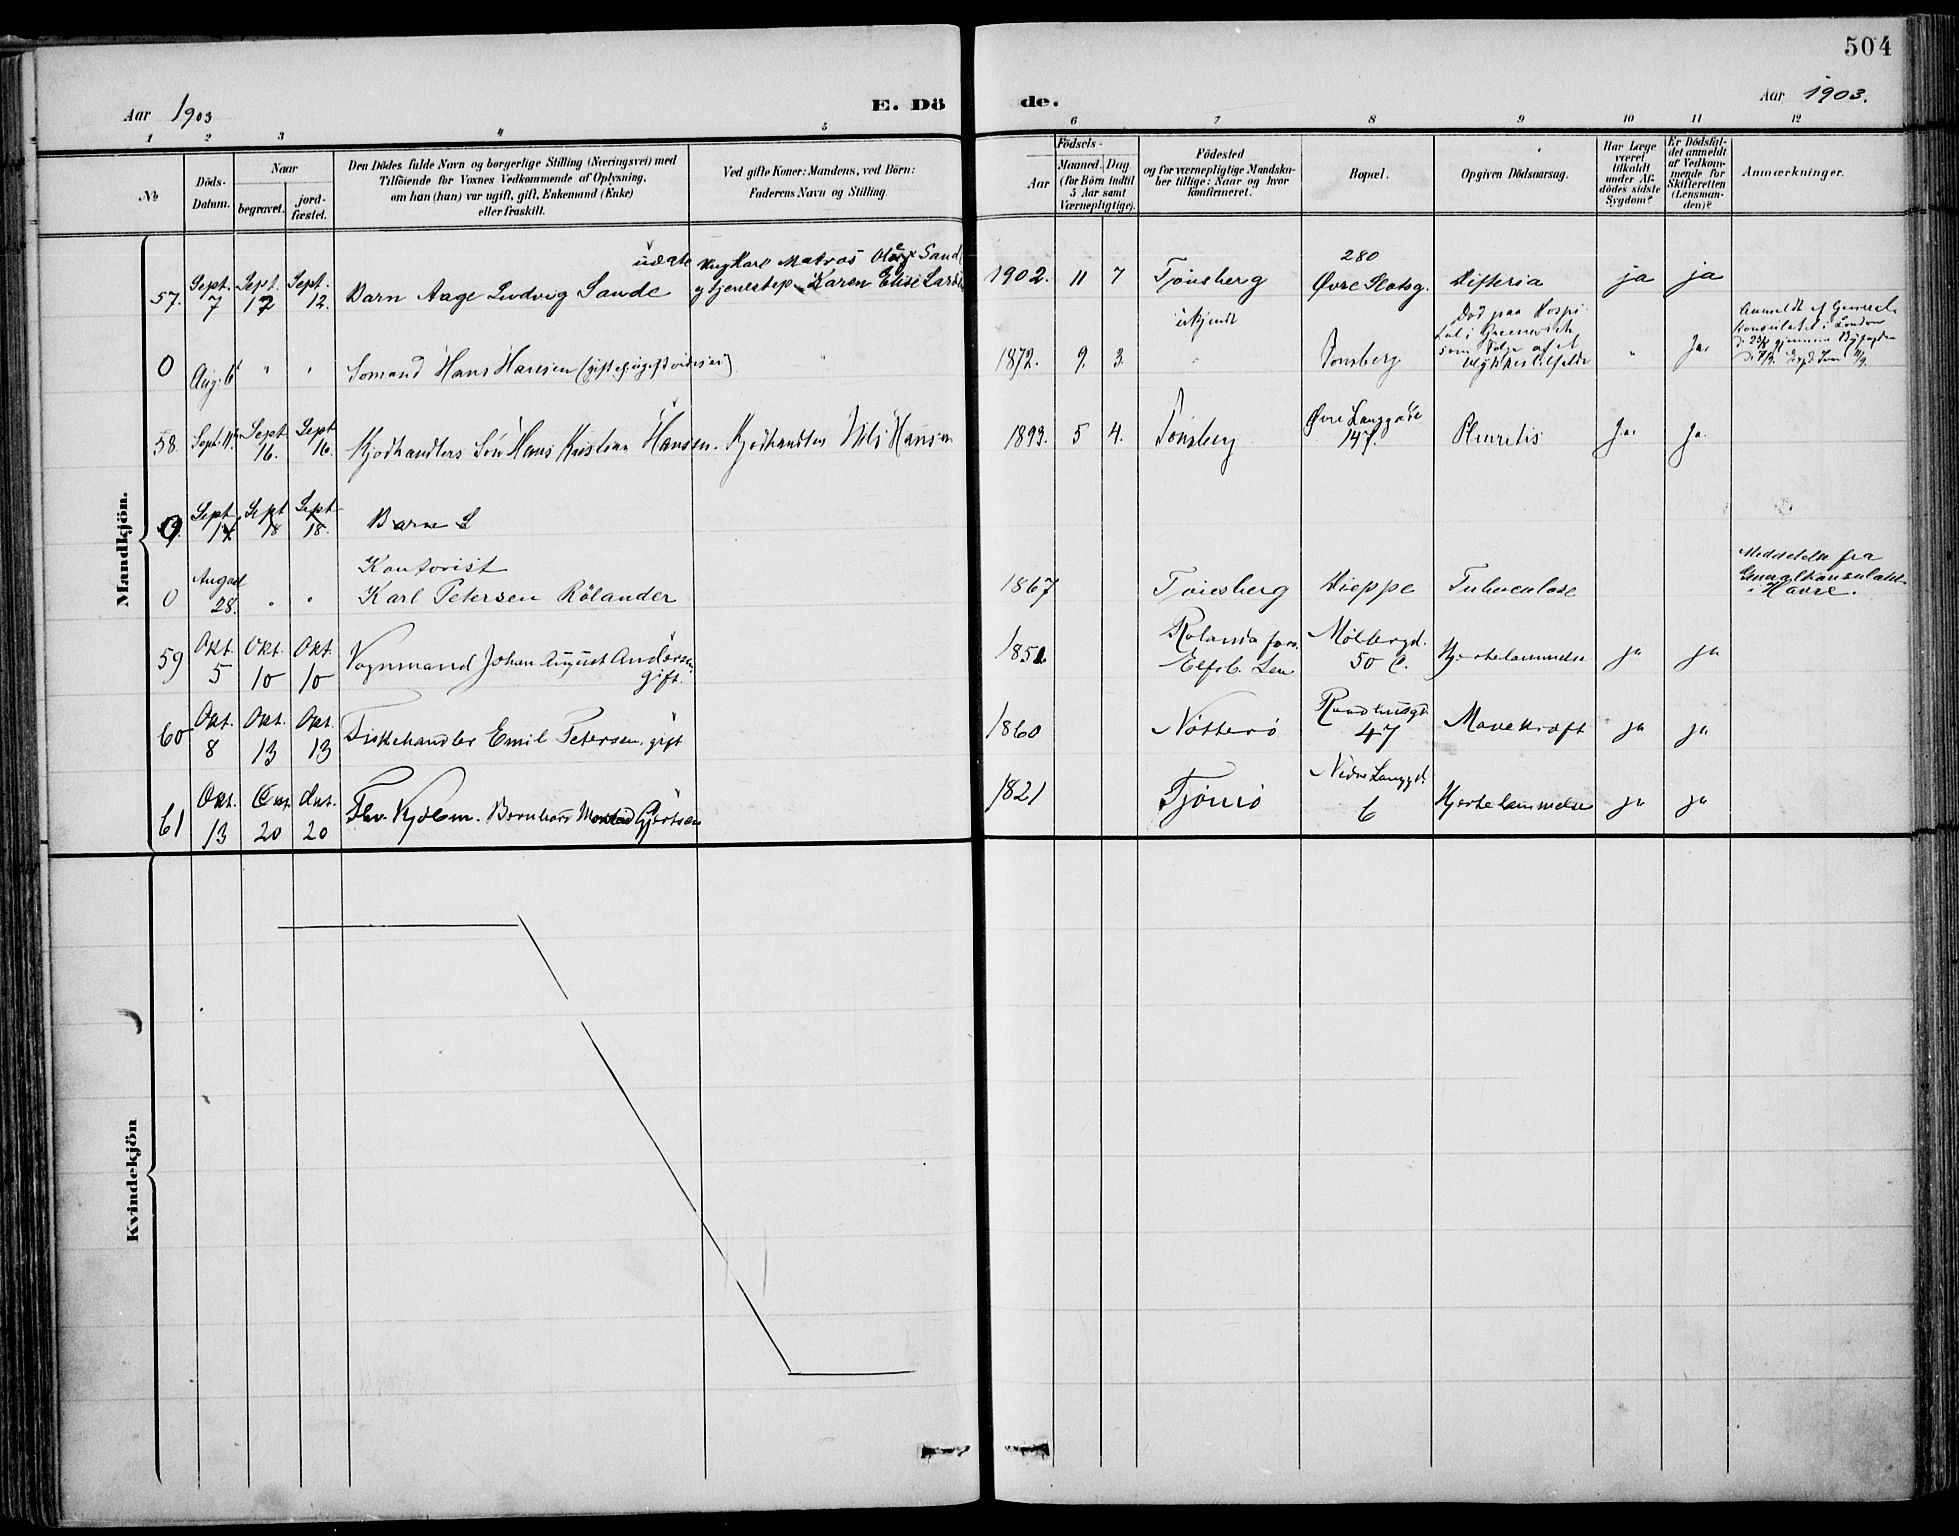 504
Aar 1903
E. Dö
de.
Aar 1903.
1 2 3 4 5 6 7 8 9 10 11 12
No
Döds-
Datum.
Naar
begravet.
jord-
fæstet.
Den Dödes fulde Navn og borgerlige Stilling (Næringsvei) med
Tilföiende for Voxnes Vedkommende af Oplysning,
om han (hun) var ugift, gift, Enkemand (Enke)
eller fraskilt.
Ved gifte Koner: Mandens, ved Börn:
Faderens Navn og Stilling.
Födsels-
Aar
Maaned. Dag
(for Börn indtil
5 Aar samt
Værnepligtige).
Födested
og for værnepligtige Mandska-
ber tillige: Naar og hvor
konfirmeret.
Bopæl.
Opgiven Dödsaarsag.
Har Læge
været
tilkaldt
under Af-
dödes sidste
Sygdom?
Er Dödsfal-
det anmeldt
af Vedkom-
mende for
Skifteretten
(Lensman-
den)?
Anmærkninger.
Mandkjön.
57. Sept. 7 Sept. 12 Sept. 12.
uægte
Barn Aage Ludvig Sande
Ungkarl Matros Sand
Karen Elise
1902. 11 7 Tönsberg
280
Øvre Slotsg.
Difteria ja ja
0 Aug. 6 " " Sømand Hans Hansen (gift el. ugift vides ei) "
1872. 9. 3.
ukjendt
Tönsberg
Död paa Hospi-
tal i Greenwich
som Følge af et
Ulykkestilfælde
" Ja.
Anmeldt af General-
konsulatet i London
58. Sept. 11 Sept. 16. Sept. 16.
Kjødhandlers Søn Hans Kristian Hansen.
Kjødhandler Nils Hansen
1893. 5 4. Tönsberg
Øvre Langgade
147.
Pleuritis Ja. Ja.
Sept. Sept 18 Sept 18.
Barn
0 August 28. " "
Kontorist
Karl Petersen Rölander
1867 Tönsberg Dieppe Tuberculose
Meddelelse fra
Generalkonsulatet
i Havre.
59 Okt. 5 Okt. 10 Okt. 10
Vognmand Johan August Andersen,
gift.
1851.
Rolanda fors.
Elfsb. Len
Møllergd.
50 C.
Hjertelammelse ja ja
60 Okt. 8 Okt. 13 Okt. 13
Fiskehandler Emil Petersen, gift
1860 Nøtterö
47
Mavekræft ja ja
61 Okt. 13 Okt. 20 Okt. 20
Bernhard Gjertsen
1821 Tjömö
Nedre Langgd.
6
Hjertelammelse ja ja
Kvindekjön